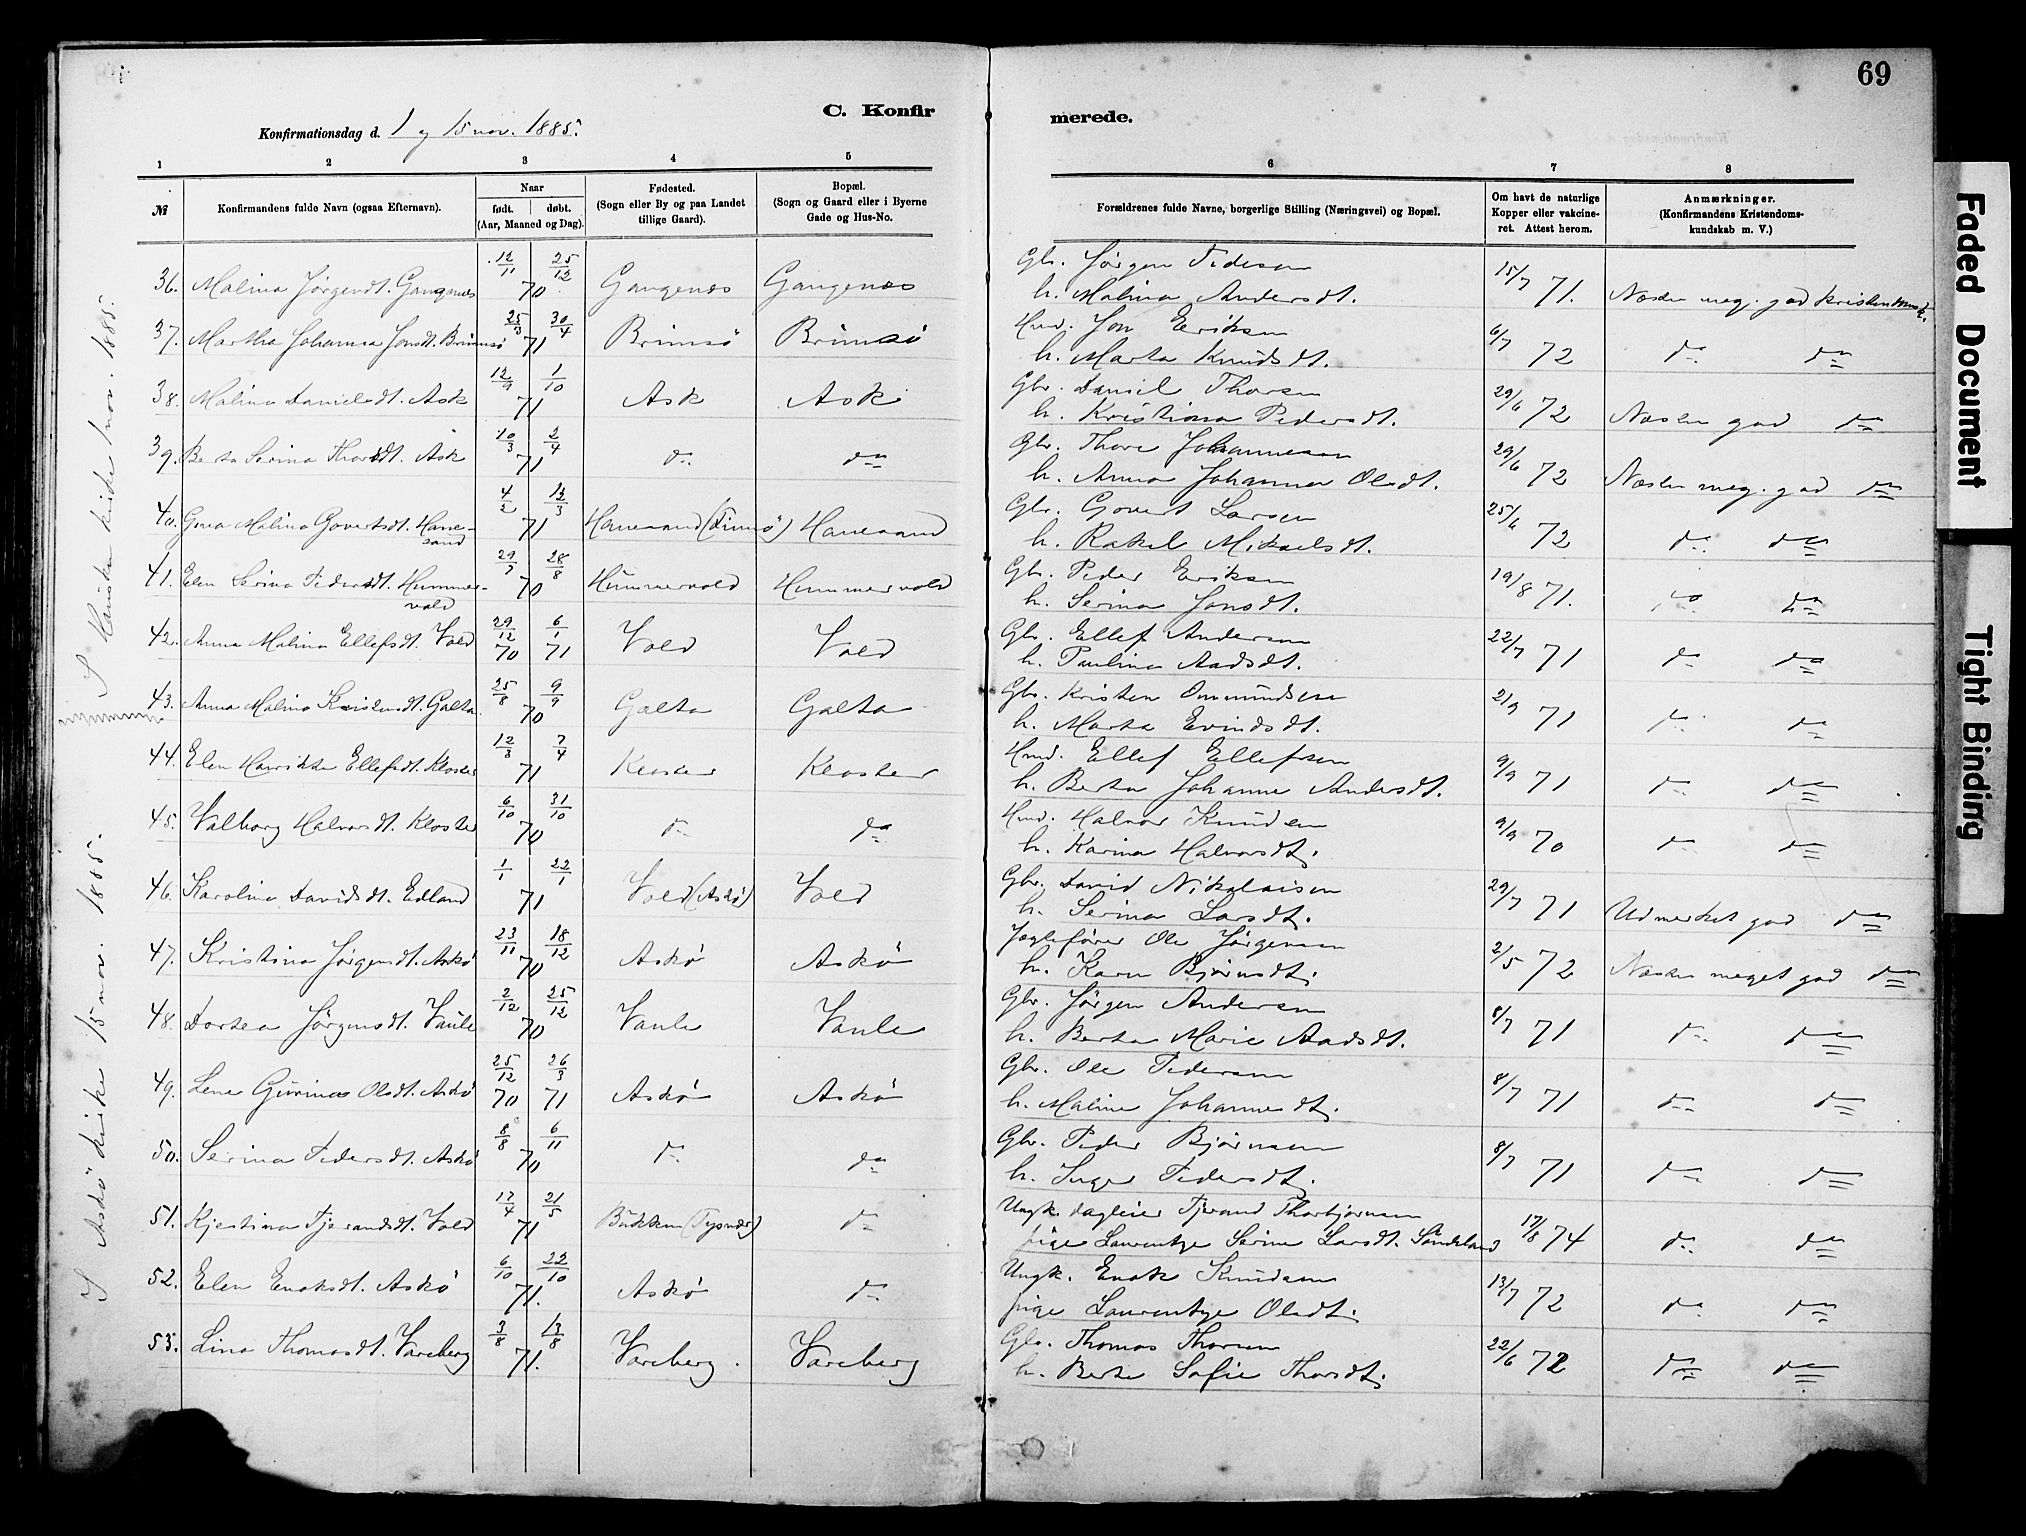 69
C. Konfirmerede.
Konfirmationsdag d. 1 og 15 nov. 1885.
1 2 3 4 5 6 7 8
№ Konfirmandens fulde Navn (ogsaa Efternavn). Naar født. døbt. (Aar, Maaned og Dag). Fødested. (Sogn eller By og paa Landet tillige Gaard). Bopæl. (Sogn og Gaard eller i Byerne Gade og Hus-No. Forældrenes fulde Navne, borgerlige Stilling (Næringsvei) og Bopæl. Om havt de naturlige Kopper eller vakcineret. Attest herom. Anmærkninger. (Konfirmandens Kristendomskundskab m. V.)
36. Malina Jørgendt. Gangenes 12/11 25/12 70 Gangenes Gangenes Gbr. Jørgen Pedersen
h. Malina Andersdt. 15/7 71. Næsten meg. god kristendomsk.
37. Martha Johanna Jonsdt. Brimsø 25/3 30/4 71 Brimsø Brimsø Hmd. Jon Eriksen
h. Marta Knudsdt. 6/7 72 do do
38. Malina Danielsdt. Ask 12/9 1/10 71 Ask Ask Gbr. Daniel Thorsen
h. Kristina Pedersdt. 29/6 72 Næsten god do
39. Berta Serina Thorsdt. Ask 10/3 2/4 71 do do Gbr. Thore Johannesen
h. Anna Johanna Olsdt. 29/6 72 Næsten meg. god do
40. Gurea Malina Govertsdt. Hanesand 4/2 12/3 71 Hanesand (Finnø) Hanesand Gbr. Govert Larsen
h. Rakel Mikaelsdt. 25/6 72 do do
41. Elen Serina Pedersdt. Hummervold 29/7 28/8 70 Hummervold Hummervold Gbr. Peder Eriksen
h. Serina Jonsdt. 19/8 71. do do
42. Anna Malina Ellefsdt. Vold 29/12 70 6/1 71 Vold Vold Gbr. Ellef Andersen
h. Paulina Aadsdt. 22/7 71 do do
43. Anna Malina Kristensdt. Galta 25/8 9/9 70 Galta Galta Gbr. Kristen Ommundsen
h. Marta Evindsdt. 21/9 71 do do
44. Elen Henrikka Ellefsdt. Kloster 12/3 7/4 71 Kloster Kloster Hmd. Ellef Ellefsen
h. Berta Johanne Andersdt. 9/9 71 do do
45. Valborg Halvorsdt. Kloster 6/10 31/10 70 do do Hmd. Halvor Knudsen
h. Karina Halvorsdt. 9/9 70 do do
46. Karolina Davidsdt. Edland 1/1 22/1 71 Vold (Askø) Vold Gbr. David Nikolaisen
h. Serina Larsdt. 29/7 71 Udmerket god do
47. Kristina Jørgensdt. Askø 23/11 18/12 70 Askø Askø Jægtefører Ole Jørgensen
h. Karen Bjørnsdt. 2/5 72 Næsten meget god do
48. Dortea Jørgensdt. Vaule 2/12 25/12 70 Vaule Vaule Gbr. Jørgen Andersen
h. Berta Marie Aadsdt. 8/7 71 do do
49. Lene Gurine Olsdt. Askø 25/12 70 26/3 71 Askø Askø Gbr. Ole Pedersen
h. Maline Johannesdt. 8/7 71 do do
50. Serina Pedersdt. Askø 8/8 6/11 70 do do Gbr. Peder Bjørnsen
h. Inger Pedersdt. 8/7 71 do do
51. Kjestina Tjerandsdt. Vold 17/4 21/5 71 Bakken (Tysvær) do Ungk. dagleier Tjerand Thorbjørnsen
pige Laurentze Serine Larsdt. 17/8 74 do do
52. Elen Enoksdt. Askø 6/10 22/10 71. Askø do Ungk. Enok Knudsen
pige Laurentze Olsdt. 13/7 72 do do
53. Lina Thomasdt. Vareberg 3/8 13/8 71. Vareberg. Vareberg Gbr. Thomas Thorsen
h. Berta Sofie Thorsdt. 22/6 72 do do
I kirke 1 nov. 1885.
I Askø kirke 15 nov. 1885.
Faded Document
Tight Binding